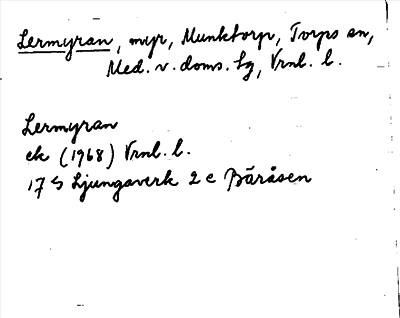 Lermyran, myr, Munktorp, Torps sn,
Med. v. doms. tg, Vrnl. l.
Lermyran
ek (1968) Vrnl. l.
17 S Ljungaverk 2 c Bäråsen